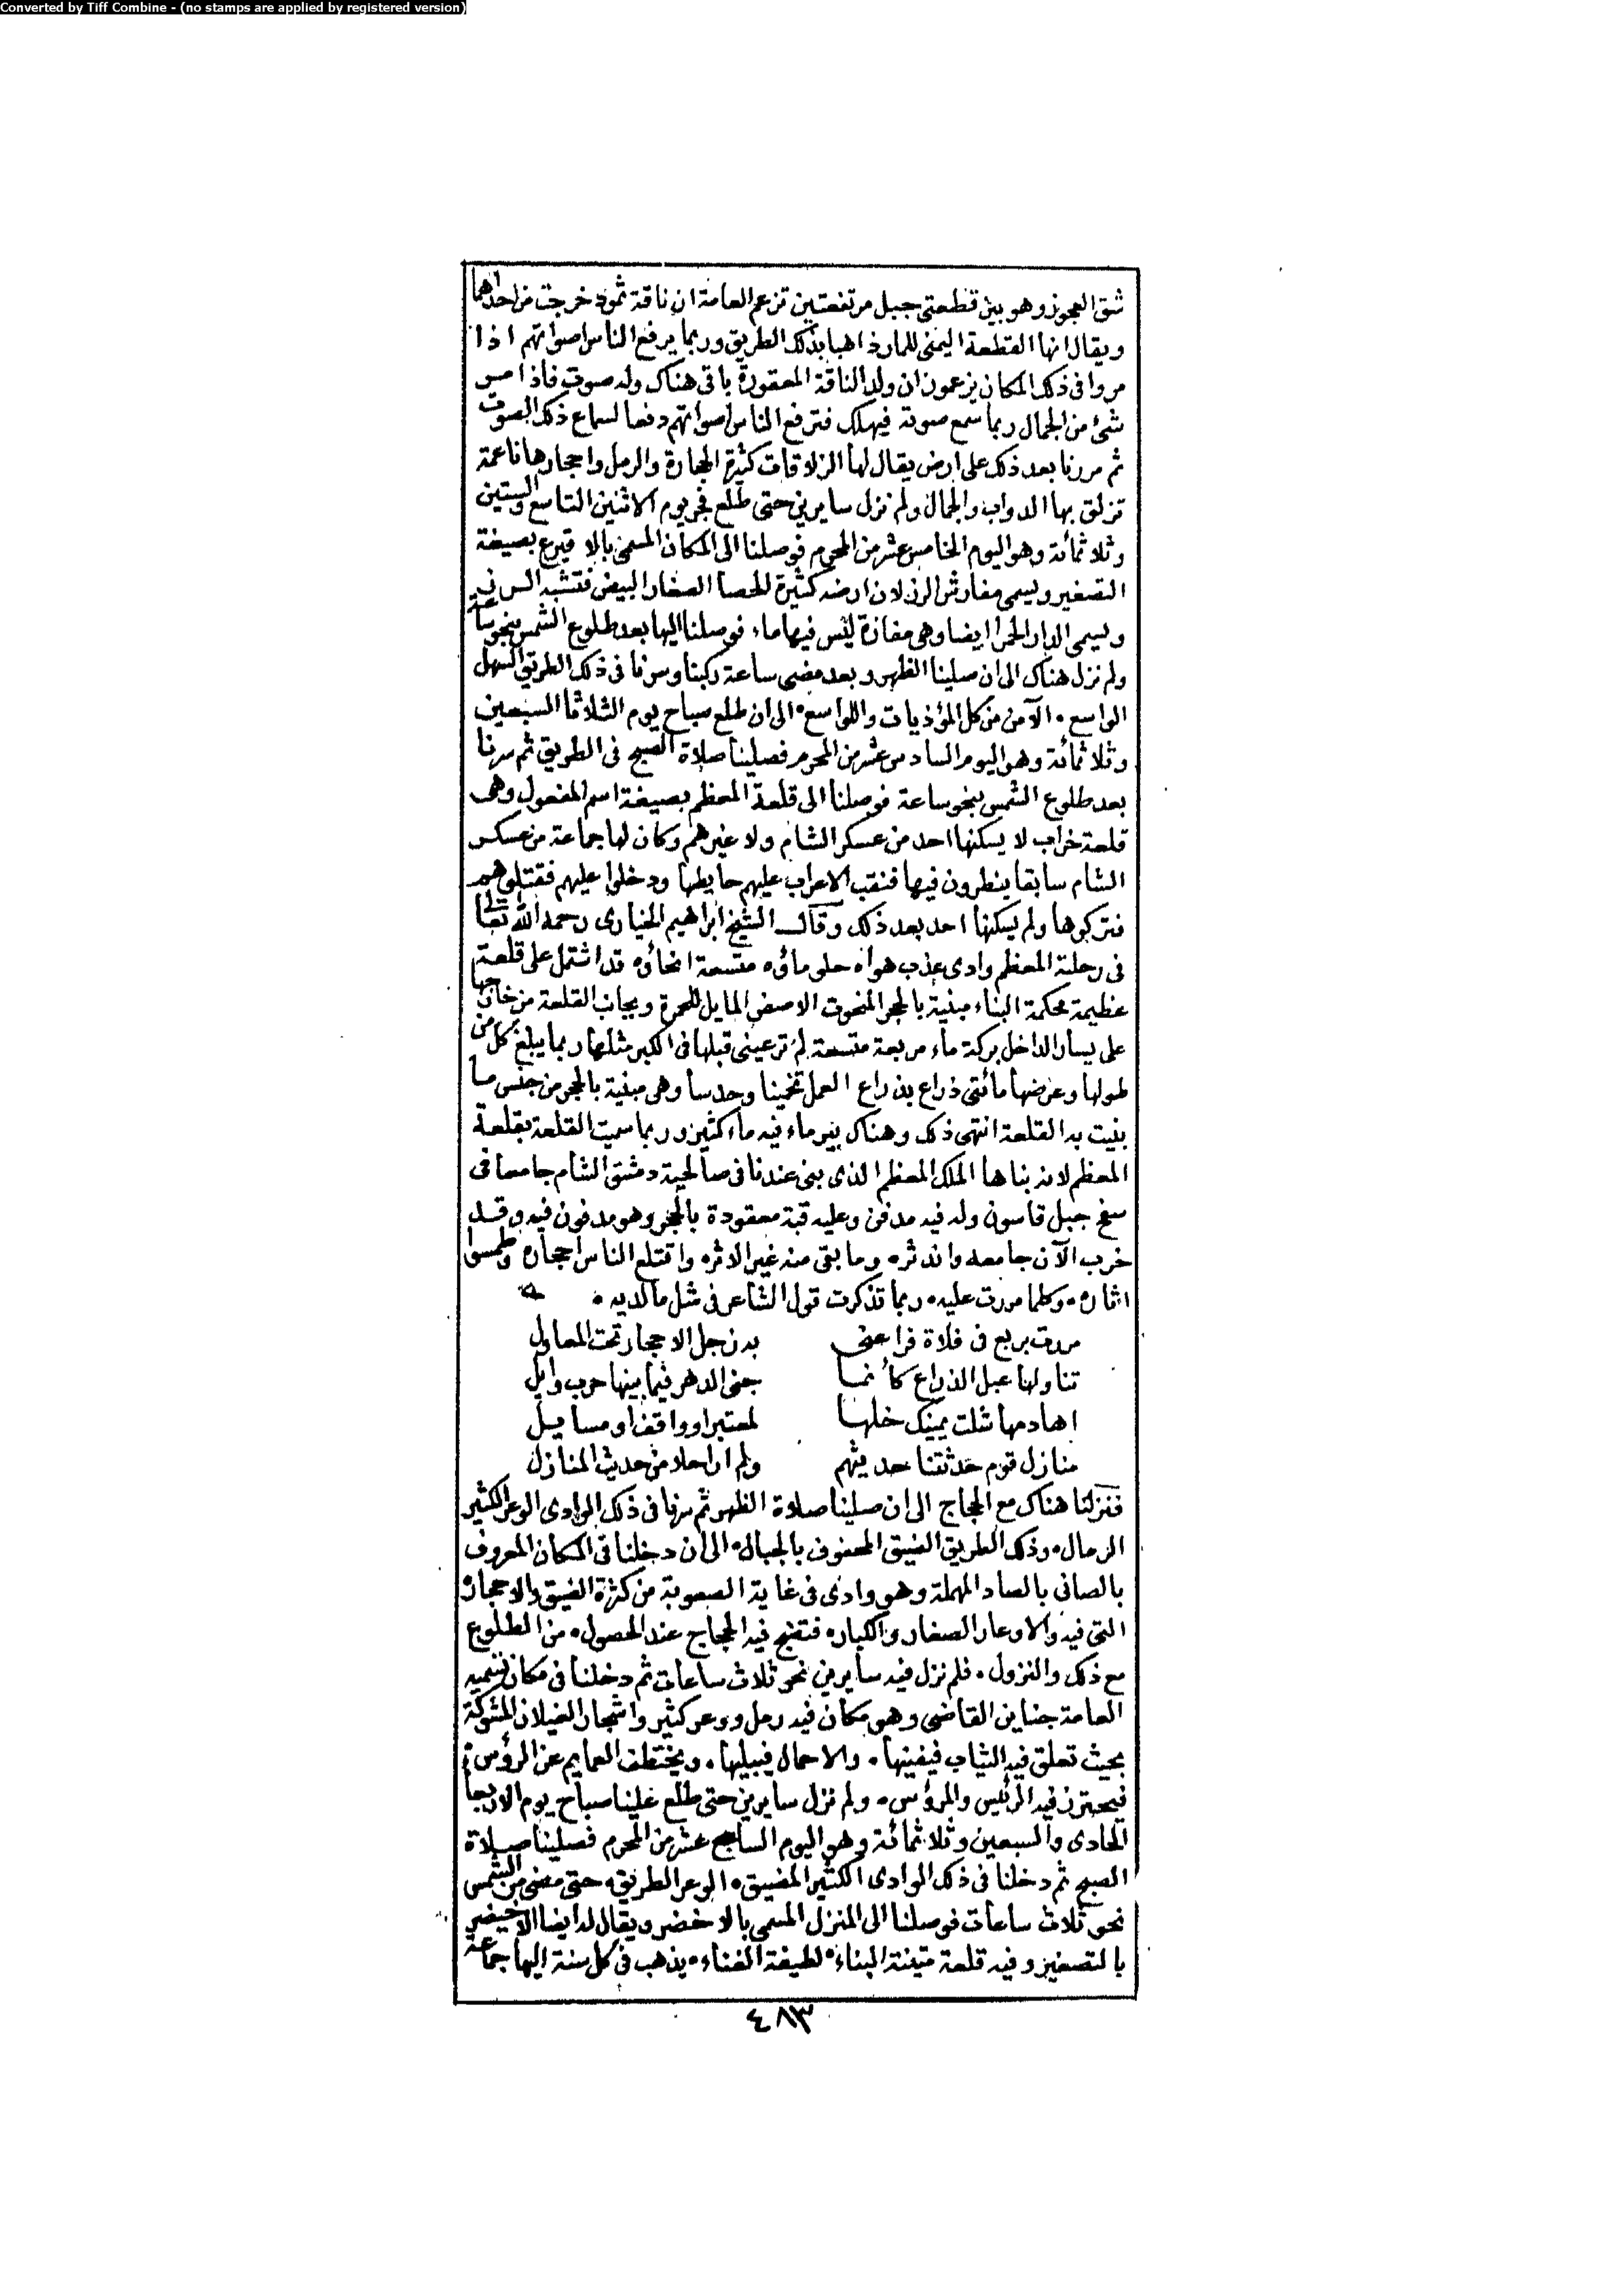 Converted by Tiff Combine - (no stamps are applied by registered version)
شق العجوز وهو بين قطعتي جبل مرتفعتين تزعم العامة ان ناقة ثمود خرجت من احداهما
ويقال انها القطعة اليمنى للمار ذاهبا بذلك الطريق وربما يرفع الناس اصواتهم اذا
مروا في ذلك المكان يزعمون ان ولد الناقة المعقورة باقي هناك وله صوت فاذا مر
شئ من الجمال ربما سمع صوته فيهلك فترفع الناس اصواتهم دفعا لسماع ذلك الصوت
ثم مررنا بعد ذلك على ارض يقال لها الزلاقات كثيرة الحجارة والرمل واحجارها ناعمة
تزلق بها الدواب والجمال ولم نزل سايرين حتى طلع فجر يوم الاثنين التاسع والستين
وثلاثمائة وهو اليوم الخامس عشر من المحرم فوصلنا الى المكان المسمى بالاقيرع بصيغة
التصغير ويسمى مفارش الرز لان ارضه كثيرة الحصا الصغار البيض فتشبه الرز
ويسمى الدار الحمرا ايضا وهى مفازة ليس فيها ماء فوصلنا اليها بعد طلوع الشمس بنحو ساعة
ولم نزل هناك الى ان صلينا الظهر وبعد مضى ساعة ركبنا وسرنا في ذلك الطريق السهل
الواسع، الآمن من كل المؤذيات واللواسع، الى ان طلع صباح يوم الثلاثا السبعين
وثلاثمائة وهو اليوم السادس عشر من المحرم فصلينا صلاة الصبح في الطريق ثم سرنا
بعد طلوع الشمس بنحو ساعة فوصلنا الى قلعة المعظم بصيغة اسم المفعول وهى
قلعة خراب لا يسكنها احد من عسكر الشام ولا غيرهم وكان لها جماعة من عسكر
الشام سابقا ينطرون فيها فنقب الاعراب عليهم حايطها ودخلوا عليهم فقتلوهم
فتركوها ولم يسكنها احد بعد ذلك وقال الشيخ ابراهيم الخيارى رحمه الله تعالى
في رحلته المعظم وادى عذب هواه حلو ماؤه متسعة انحاؤه قد اشتمل على قلعة
عظيمة محكمة البناء مبنية بالحجر المنحوت الاصفر المايل للحمرة وبجانب القلعة من خارجها
على يسار الداخل بركة ماء مربعة متسعة لم تر عيني قبلها في الكبر مثلها ربما يبلغ كل من
طولها وعرضها مائتى ذراع بذراع العمل تخمينا وحدسا وهى مبنية بالحجر من جنس ما
بنيت به القلعة انتهى ذلك وهناك بير ماء فيه ماء كثير وربما سميت القلعة بقلعة
المعظم لانه بناها الملك المعظم الذى بنى عندنا في صالحية دمشق الشام جامعا في
سفح جبل قاسون وله فيه مدفن وعليه قبة معقودة بالحجر وهو مدفون فيه وقد
خرب الآن جامعه واندثره وما بقى منه غير الاثره واقتلع الناس احجاره وطمسوا
اثاره، وكلما مررت عليه، ربما تذكرت قول الشاعر في مثل مالديه،
مررت بربع في فلاة فراعنى بدزجل الاحجار تحت المعاول
تناولها عبل الذراع كأنما جنى الدهر فيما بينها حرب وايل
اهادمها شلت يمينك خلها لمعتبر او واقف او مسايل
منازل قوم حدثتنا حديثهم ولم ار احلا من حديث المنازل
فنزلنا هناك مع الحجاج الى ان صلينا صلاة الظهر ثم سرنا في ذلك الوادى الوعر الكثير
الرمال، وذلك الطريق الضيق المحفوف بالجبال، الى ان دخلنا في المكان المعروف
بالصانى بالصاد المهملة وهو وادى في غاية الصعوبة من كثرة الضيق والاحجار
التى فيه والاوعار الصغار والكبار، فتضج فيه الحجاج عند الحصول، من الطلوع
مع ذلك والنزول، فلم نزل فيه سايرين نحو ثلاث ساعات ثم دخلنا في مكان تسميه
العامة جناين القاضى وهو مكان فيه رمل ووعر كثير واشجار الغيلان المشوكة
بحيث تعلق فيه الثياب فيفينها، والاحمال فيبليها، ويختطف العمايم عن الرؤس،
فيحترز فيه الرئيس والمرؤس، ولم نزل سايرين حتى طلع علينا صباح يوم الاربعا
الحادى والسبعين وثلاثمائة وهو اليوم السابع عشر من المحرم فصلينا صلاة
الصبح ثم دخلنا في ذلك الوادى الكثير المضيق، الوعر الطريق، حتى مضى من الشمس
نحو ثلاث ساعات فوصلنا الى المنزل المسمى بالاخضر ويقال له ايضا الاخيضر
بالتصغير وفيه قلعة متينة البناء، لطيفة الفناء، يذهب في كل سنة اليها جماعة
٤٨٣